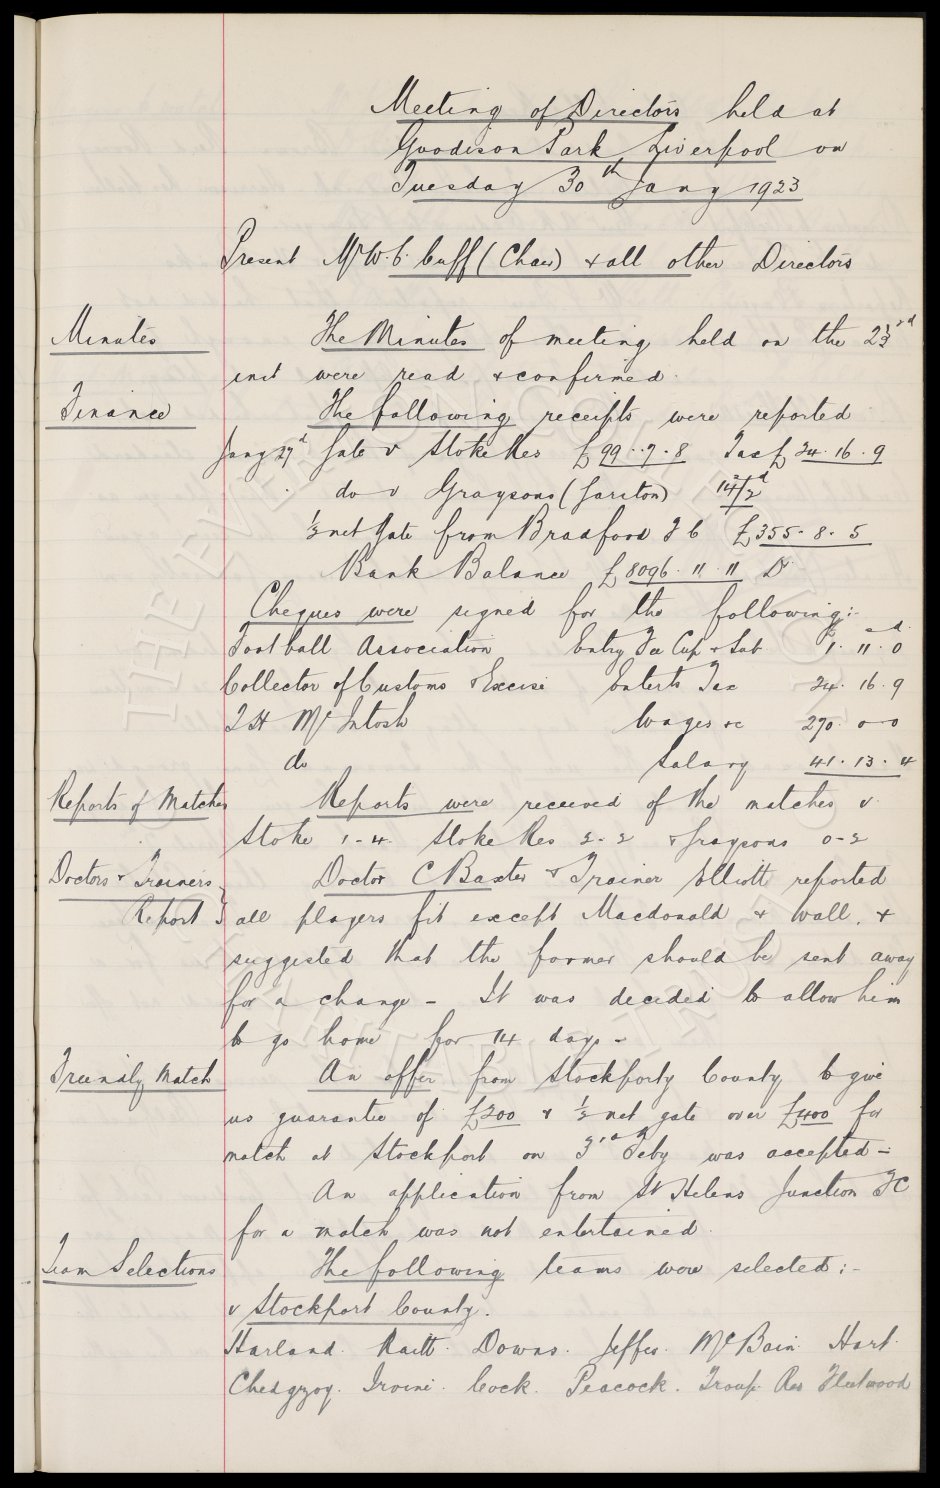 Meeting of Directors held at
Goodison Park Liverpool on
Tuesday 30th Jany 1923
Present Mr W. C. Cuff (Chair) & all other Directors
Minutes
The Minutes of meeting held on the 23rd
inst were read & confirmed.
Finance
The following receipts were reported
Jany 27 Gate v Stoke Res £99..7.8 Tax £24.16.9
do v Graysons (Garston) 14/2d
½ net Gate from Bradford F C £355.8.5
Bank Balance £8096.11.11 Dr
Cheques were signed for the following:-
£ s d
Football Association Entry Fee Cup & Sub 1.11.0
Collector of Customs & Excise Enterts Tax 24.16.9
T H McIntosh Wages &c 270.0.0
do Salary 41.13.4
Reports of Matches
Reports were received of the matches v
Stoke 1-4. Stoke Res 2-2 & Graysons 0-2
Doctors & Trainers
Report
Doctor C Baxter & Trainer Elliott reported
all players fit except Macdonald & Wall, &
suggested that the former should be sent away
for a change - It was decided to allow him
to go home for 14 days -
Friendly Match
An offer from Stockport County to give
us guarantee of £200 & ½ net gate over £400 for
match at Stockport on 3rd Feby was accepted -
An application from St Helens Junction FC
for a match was not entertained.
Team Selections
The following teams were selected:-
v Stockport County.
Harland. Raitt. Downs. Jeffs. McBain. Hart.
Chedgzoy. Irvine. Cock. Peacock. Troup. Res Fleetwood
THE EVERTON